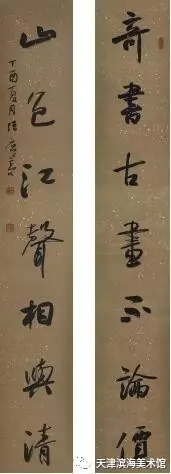 奇書古畫不論價
山色江聲相與清
丁酉夏月
天津滨海美术馆